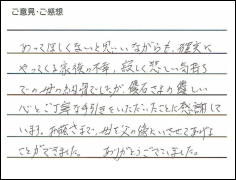 ご意見・ご感想
やってほしくないと思いながらも、確実に
やってくる家族の不幸、寂しく悲しい気持ち
での母のお骨でしたが、優石さまの優しい
心とご丁寧な手引きをいただいたことに感謝して
います。お蔭さまで、母を父の傍にいさせてあげる
ことができました。 ありがとうございました。